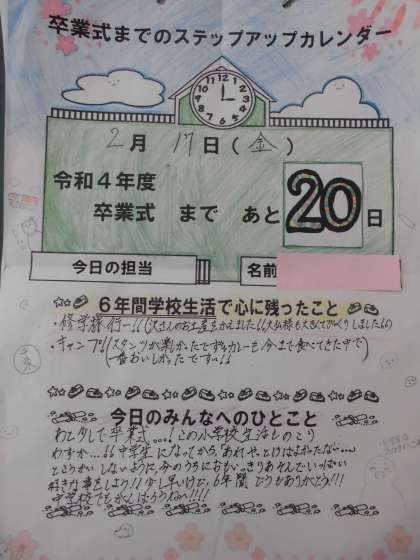 卒業式までのステップアップカレンダー
2月 17日(金)
令和4年度
卒業式 まで あと 20 日
今日の担当
名前
6年間学校生活で心に残ったこと
・修学旅行ー!!(沢さんのお土産をかえました!!大仏様も大きくてびっくりしました!!)
・キャンプ!(スタンツが楽しかったです!カレーも今まで食べてきた中で
一番おいしかったです!!)
今日のみんなへのひとこと
あと少しで卒業…!この小学校生活ものこり
わずか…!!中学生になってから「あれやっとけばよかったな…」
とこうかいしないように、今のうちにおもいっきりあそんでいっぱい
好きな事をしよう!!少し早いけど、6年間どうもありがとう!!!
中学校でもがんばろうね!!!!